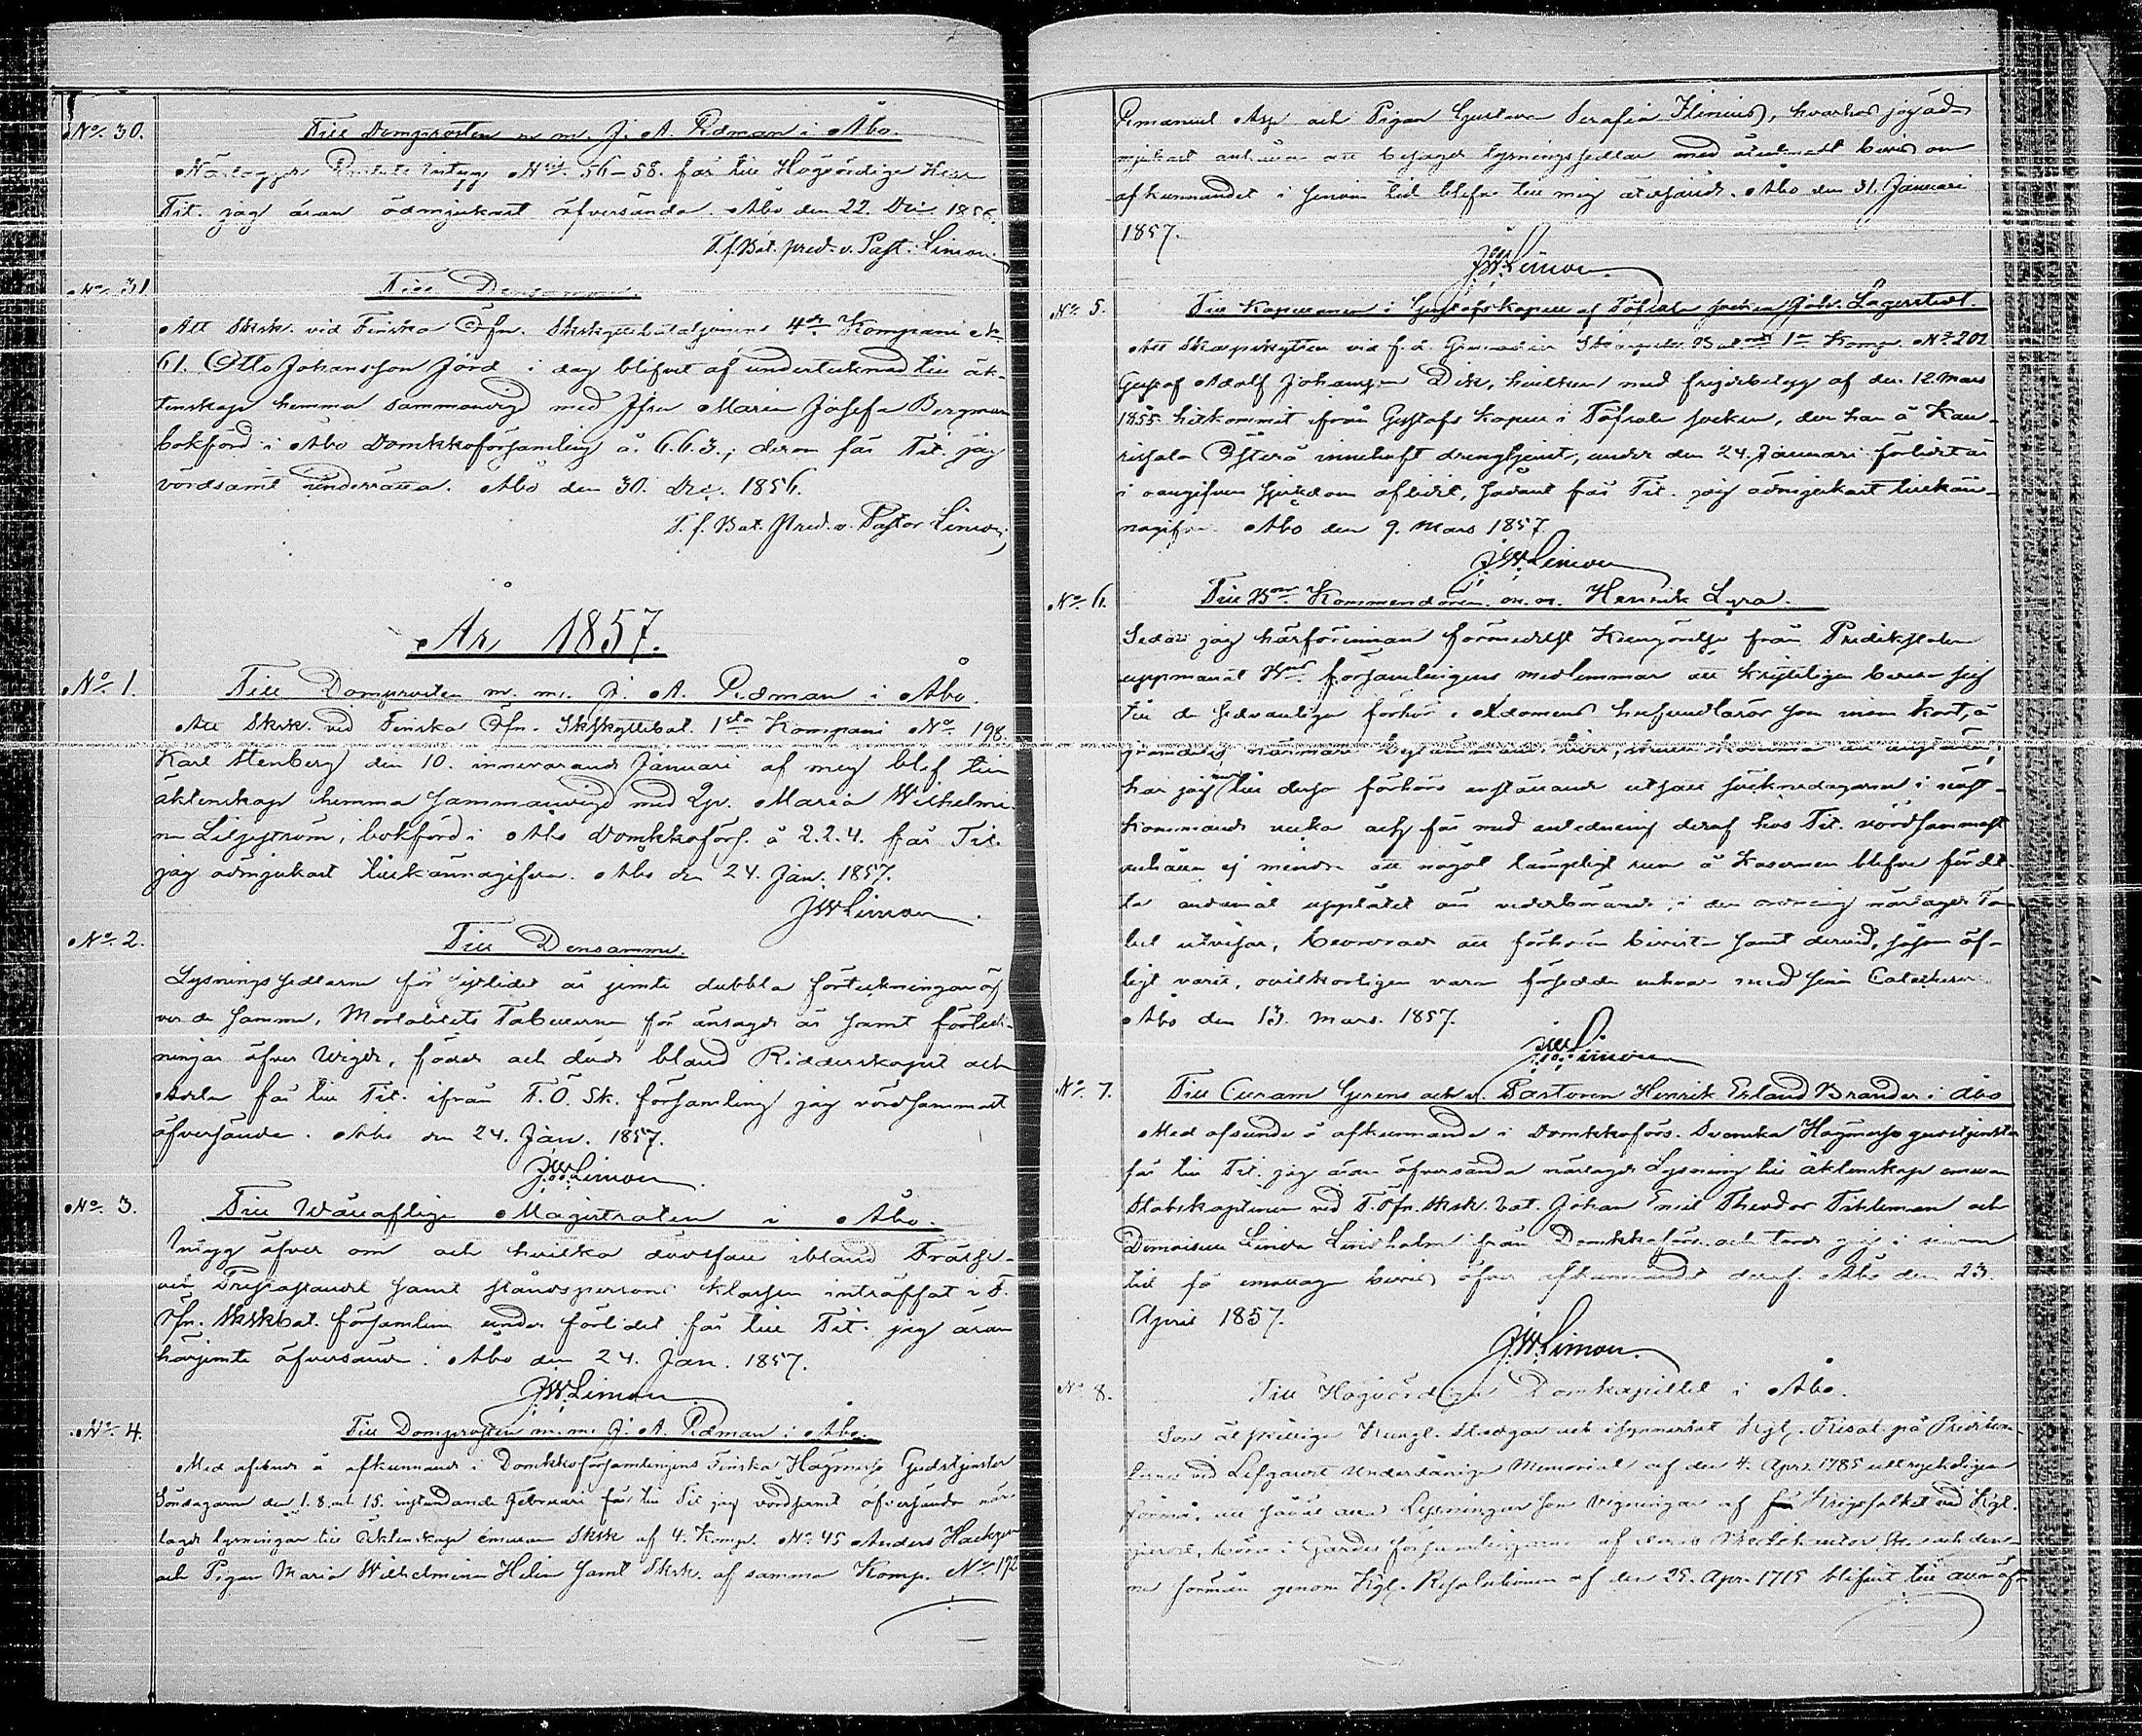 No. 30.
Till Domprosten m. m. J. A. Edman i Åbo.
Närlagde intyg N:ris 56-58. får till Högvördige Herr
Tit. jag äran ödmjukast öfversända. Åbo den 22. Dec. 1856.
T. f. Bat. pred. v. Past. Limon
No. 31
Till Densamme.
Att Skrsk. vid Finska Öfn. Skrskyttebataljonens 4de Kompani No
61. Otto Johansson Jord i dag blifvit af undertecknad till äk-
tenskap hemma sammanvigd med Jfrn Maria Josefa Bergman
bokförd i Åbo Domkkoförsamling å. 6.6.3.; derom får Tit. jag
vördsamt underrätta. Åbo den 30. Dec. 1856.
T. f. Bat. Pred. v. Pastor Limon
År 1857.
No. 1.
Till Domprosten m. m. J. A. Edman i Åbo
Att Skrsk. vid Finska Öfn. Skrskyttebat. 1sta Kompani No. 198.
Karl Stenberg den 10. innevarande Januari af mig blef till
äktenskap hemma sammanvigd med Maria Wilhelmi-
na Liljeström, bokförd i Åbo Domkkoförs. å 2.2.4. får Tit.
jag ödmjukast tillkännagifva. Åbo den 24. Jan. 1857.
JWLimon
No. 2.
Till Densamme.
Lysningssedlarne för sistlidet år jemte dubbla förteckningar öf-
ver de samma, Mortalitets Tabellerna för änsagde år samt förteck-
ningar öfver vigde, födde och döde bland Ridderskapet och
Adeln får till Tit. ifrån F. Ö. Sk. församling jag vördsammast
öfversända. Åbo den 24. Jan. 1857.
JWLimon
No. 3.
Till Wällaflige Magistraten i Åbo.
Intyg öfver om och hvilka dödsfall ibland Frälse-
och Presteståndet samt ståndspersons klassen inträffat i F.
Öfn. Skrskbat. församling under förlidet får till Tit. jag äran
härjemte öfversända. Åbo den 24. Jan. 1857.
JWLimon
No. 4.
Till Domprosten m. m. J. A. Edman i Åbo.
Med afseende å afkunnande i Domkkoförsamlingens Finska Högmesso Gudstjenster
Söndagarne den 1. 8. och 15. instundande Februari får till Tit jag vördsamt öfversända när-
lagde lysningar till Äktenskap emellan Skrsk af 4. Komp. No. 45 Anders
och Pigan Maria Wilhelmina Helin samt Skrsk. af samma Komp. No. 192
Emanuel Asp och Pigan Gustava Serafia Ilenius, hvarhos jag öd-
mjukast anhåller att besagde lysningssedlar med åtecknadt bevis om
afkunnandet i sinom tid blifva till mig återsände. Åbo den 31. Januari
1857.
JWLimon
No. 5.
Till Kapellanen i Gustafs kapell af Töfsala socken Joh. Lagerstedt.
Att Skarpskytten vid f. d. Grenadier Skarpsk. Bat:ns 1a Komp. No. 202
Gustaf Adolf Johansson Dek, hvilken med frejdebetyg af den 12. Mars
1855 hitkommit ifrån Gustafs kapell i Töfsala socken, der han å Kau-
risala Österå innehaft drengtjenst, under den 24. Januari förlidet år
i oangifven sjukdom aflidit, sådant får Tit. jag ödmjukast tillkän-
nagifva. Åbo den 9. Mars 1857
JWLimon
No. 6.
Till Kommendören m. m. Henrik Lyra.
Sedan jag härförinnan förmedelst Kungörelse från Predikstolen
uppmanat församlingens medlemmar att skyteligen bereda sig
till de sedvanliga förhör i
har jag till dessa förhörs anställande utsatt söcknedagarne i näst-
kommande vecka och får med anledning deraf hos Tit. vördsammast
anhålla ej mindre att något lämpeligt rum å Kasernen blefve för det-
ta ändamål upplåtet än vederbörande, i den ordning närlagde Ta-
bell utvisar, beordrade att förhören bevista samt dervid, såsom öf-
ligt varit, ovilkorligen vara försedde enhvar med sin Cateches.
Åbo den 13. Mars. 1857.
JWLimon
No. 7.
Till Curam Gerens och v. Pastoren Henrik Erland Brander i Åbo
Med afseende å afkunnande i Domkkoförs. Svenska Högmesso gudstjenster
får till Tit. jag äran öfversända närlagde Lysning till äktenskap emellan
Stabskaptenen vid F. Öfn. Skrsk. bat. Johan Emil Theodor Tihleman och
Demoiselle Linda Lindholm från Domkkoförs. och torde jag i sinom
tid få emottaga bevis öfver afkunnandet deraf. Åbo den 23.
April 1857.
JWLimon.
No. 8.
Till Högvördiga Domkapitlet i Åbo.
Som åtskillige Kungl. Stadgar och isynnerhet Kgl. Resol. på Predikan-
terne vid Lifgardet Underdåniga Memorial af den 4. Apr. 1785 uttryckeligen
förmå, att såväl alla Lysningar som vigningar af Krigsfolket vid Kgl.
gardet, böra i Gardes församlingarne af deras Predikanter ske och den-
na förmån genom Kgl. Resolutionen af den 25. Apr. 1715 blifvit till